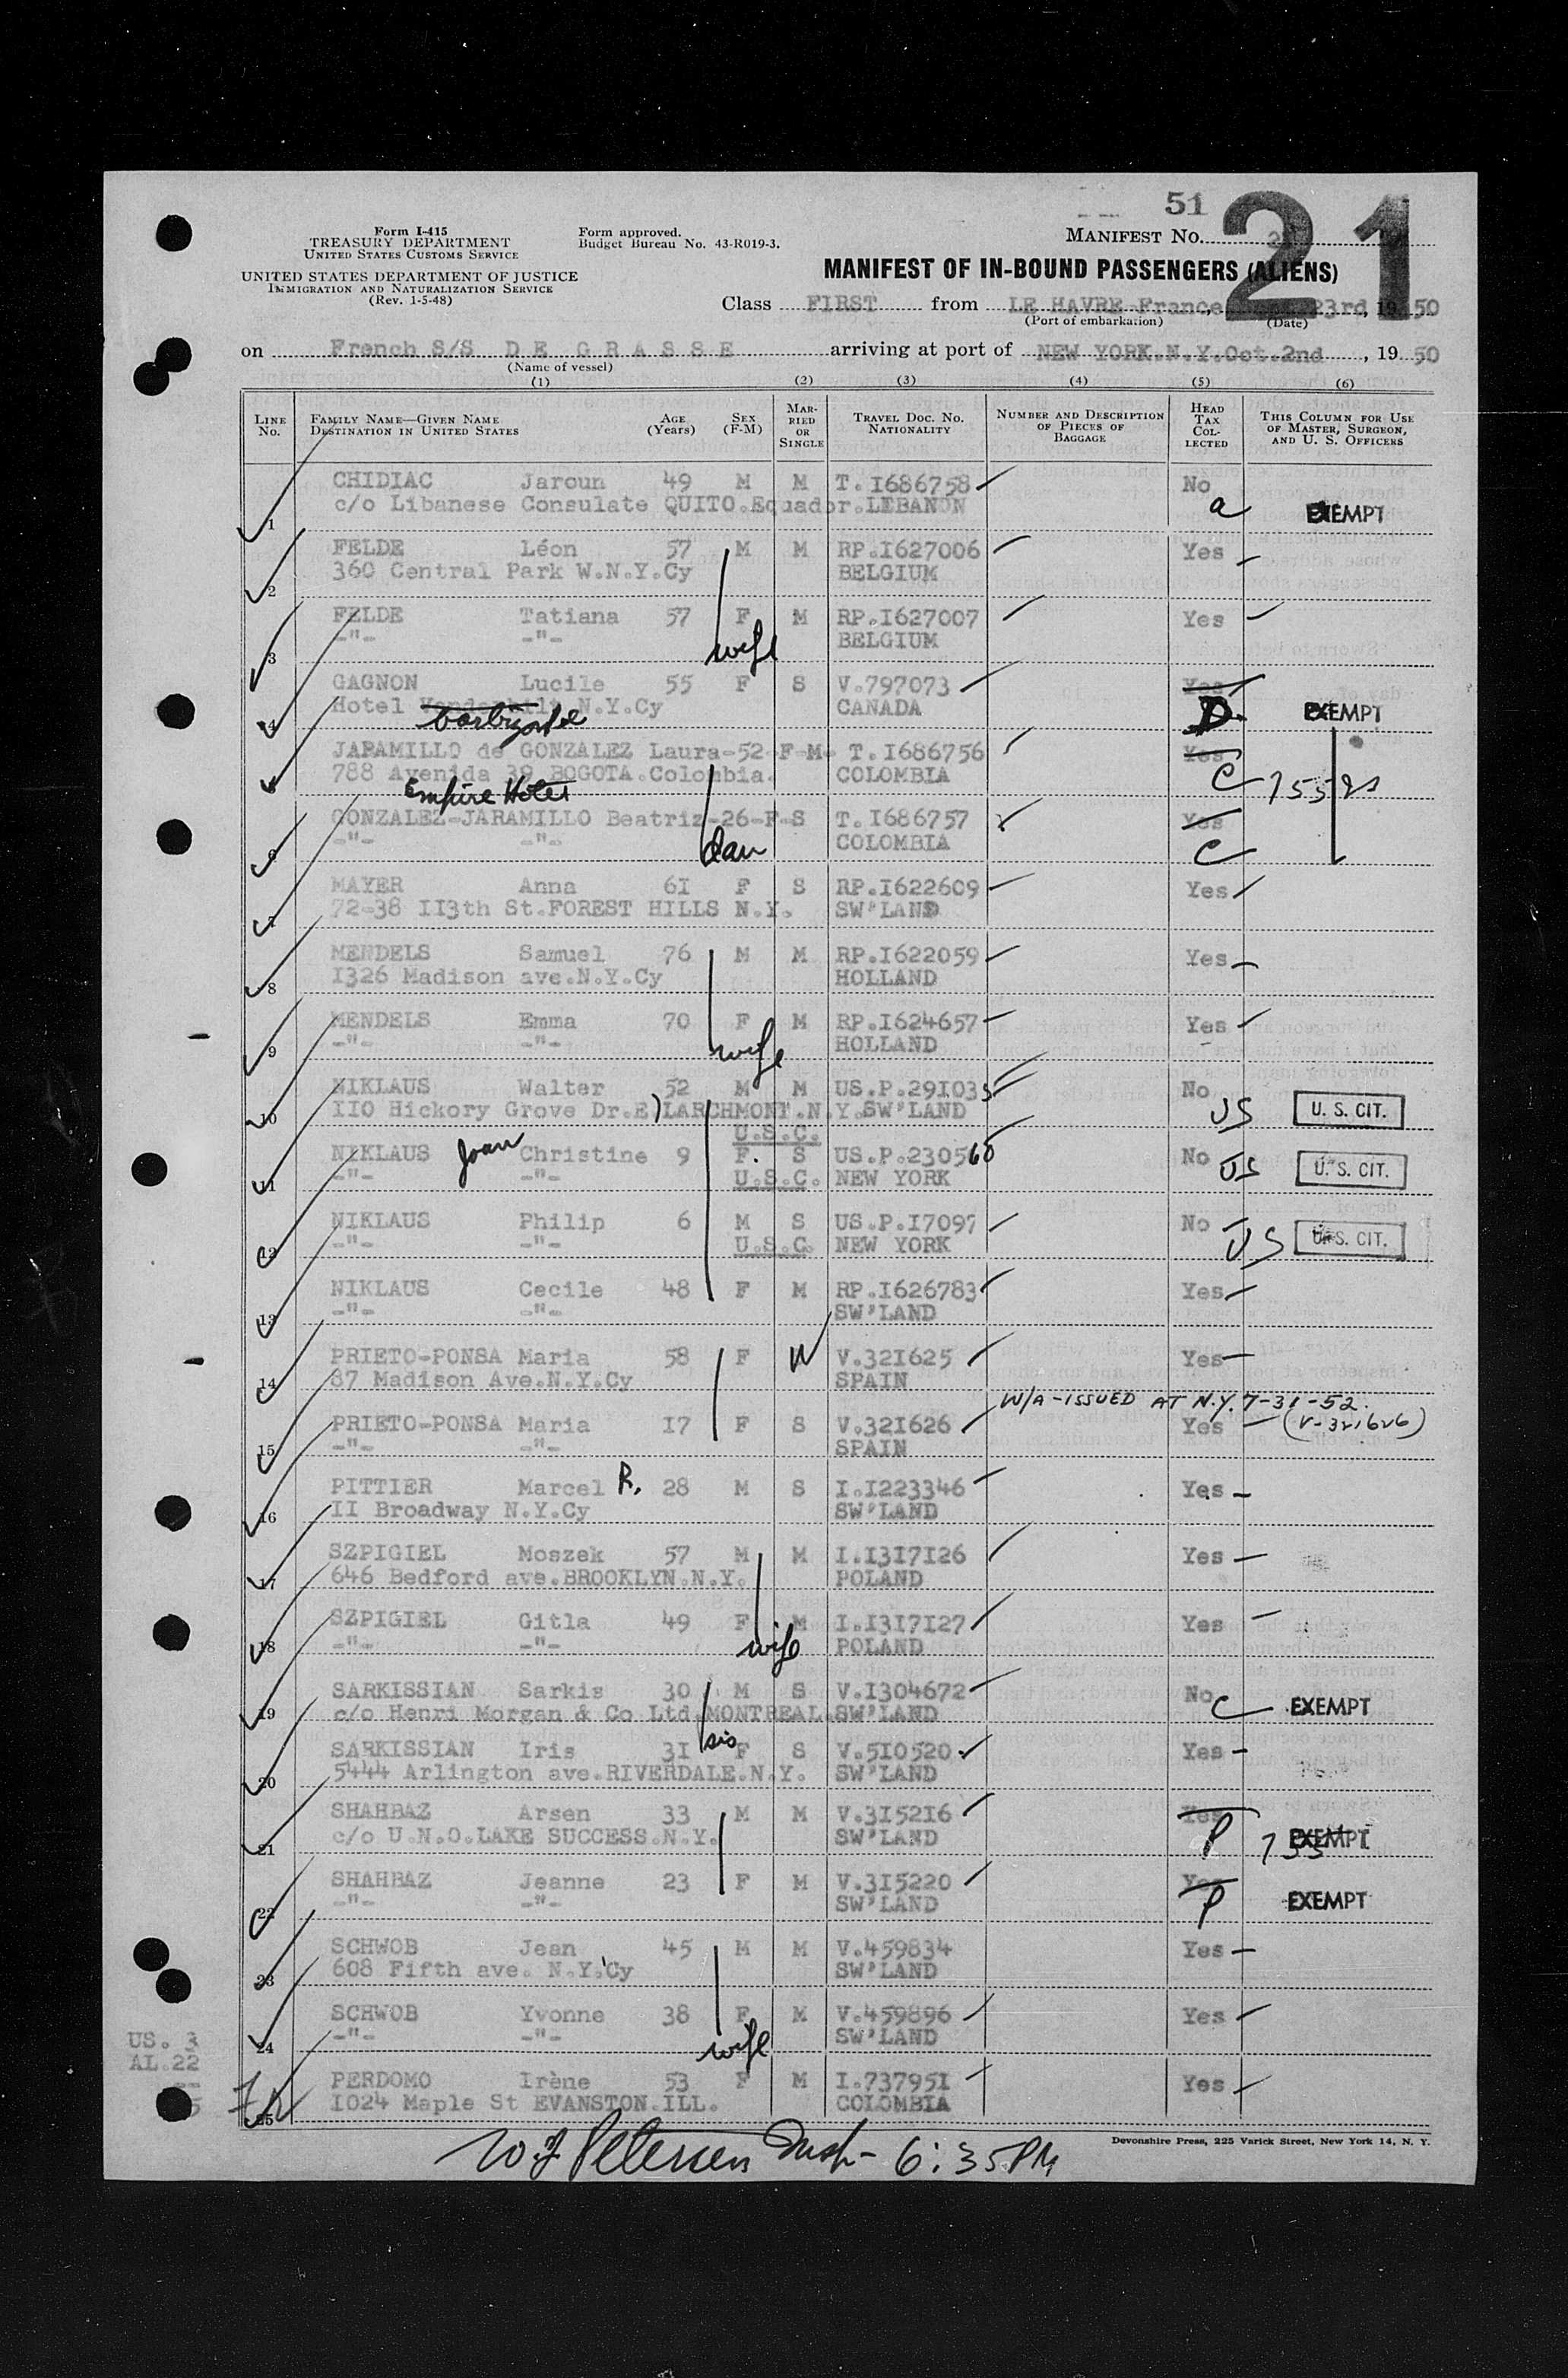 51
21
Form I-415
TREASURY DEPARTMENT
UNITED STATES CUSTOMS SERVICE
UNITED STATES DEPARTMENT OF JUSTICE
IMMIGRATION AND NATURALIZATION SERVICE
(Rev. 1-5-48)
Form approved.
Budget Bureau No. 43-R019-3.
MANIFEST No.
MANIFEST OF IN-BOUND PASSENGERS (ALIENS)
Class FIRST from LE HAVRE-France, 23rd, 1950
(Port of embarkation) (Date)
on French S/S DE GRASSE arriving at port of NEW YORK.N.Y.Oct.2nd, 19 50
(Name of vessel)
(1) (2) (3) (4) (5) (6)
LINE No. FAMILY NAME—GIVEN NAME DESTINATION IN UNITED STATES AGE (Years) SEX (F-M) MARRIED OR SINGLE TRAVEL DOC. NO. NATIONALITY NUMBER AND DESCRIPTION OF PIECES OF BAGGAGE HEAD TAX COLLECTED THIS COLUMN FOR USE OF MASTER, SURGEON, AND U. S. OFFICERS
CHIDIAC Jaroun 49 M M T.I686758 No
1 c/o Libanese Consulate QUITO.Equador.LEBANON a EXEMPT
FELDE Léon 57 M M RP.I627006 Yes
2 360 Central Park W.N.Y.Cy BELGIUM
FELDE Tatiana 57 F M RP.I627007 Yes
3 -"- -"- wife BELGIUM
GAGNON Lucile 55 F S V.797073 Yes
4 Hotel N.Y.Cy CANADA D. EXEMPT
JARAMILLO de GONZALEZ Laura-52-F-M- T.I686756 Yes
788 Avenida 39 BOGOTA.Colombia. COLOMBIA C
Empire Hotel
GONZALEZ-JARAMILLO Beatriz-26-F-S T.I686757 Yes
6 -"- -"- dau COLOMBIA C
MAYER Anna 6I F S RP.I622609 Yes
7 72-38 II3th St.FOREST HILLS N.Y. SW'LAND
MENDELS Samuel 76 M M RP.I622059 Yes
8 I326 Madison ave.N.Y.Cy HOLLAND
MENDELS Emma 70 F M RP.I624657 Yes
9 -"- -"- wife HOLLAND
NIKLAUS Walter 52 M M US.P.29I035 No
10 II0 Hickory Grove Dr.E) LARCHMONT.N.Y.SW'LAND US U. S. CIT.
U.S.C.
NIKLAUS Joan Christine 9 F. S US.P.230560 No
11 -"- -"- U.S.C. NEW YORK US U. S. CIT.
NIKLAUS Philip 6 M S US.P.I7097 No
12 -"- -"- U.S.C. NEW YORK US U. S. CIT.
NIKLAUS Cecile 48 F M RP.I626783 Yes
13 -"- -"- SW'LAND
PRIETO-PONSA Maria 58 F W V.32I625 Yes
14 87 Madison Ave.N.Y.Cy SPAIN
W/A-ISSUED AT N.Y. 7-31-52.
PRIETO-PONSA Maria I7 F S V.32I626 Yes (V-321626)
15 -"- -"- SPAIN
PITTIER Marcel R. 28 M S I.I223346 Yes
16 II Broadway N.Y.Cy SW'LAND
SZPIGIEL Moszek 57 M M I.I3I7I26 Yes
17 646 Bedford ave.BROOKLYN.N.Y. POLAND
SZPIGIEL Gitla 49 F M I.I3I7I27 Yes
18 -"- -"- wife POLAND
SARKISSIAN Sarkis 30 M S V.I304672 No
19 c/o Henri Morgan & Co Ltd.MONTREAL.SW'LAND C EXEMPT
SARKISSIAN Iris 3I sis F S V.5I0520 Yes
20 5444 Arlington ave.RIVERDALE.N.Y. SW'LAND
SHAHBAZ Arsen 33 M M V.3I52I6 Yes
21 c/o U.N.O.LAKE SUCCESS.N.Y. SW'LAND P EXEMPT
SHAHBAZ Jeanne 23 F M V.3I5220 Yes
22 -"- -"- SW'LAND P EXEMPT
SCHWOB Jean 45 M M V.459834 Yes
23 608 Fifth ave. N.Y.Cy SW'LAND
SCHWOB Yvonne 38 F M V.459896 Yes
24 -"- -"- wife SW'LAND
US. 3
AL.22
PERDOMO Irène 53 F M I.73795I Yes
25 I024 Maple St EVANSTON.ILL. COLOMBIA
Devonshire Press, 225 Varick Street, New York 14, N. Y.
Petersen Insp- 6:35PM